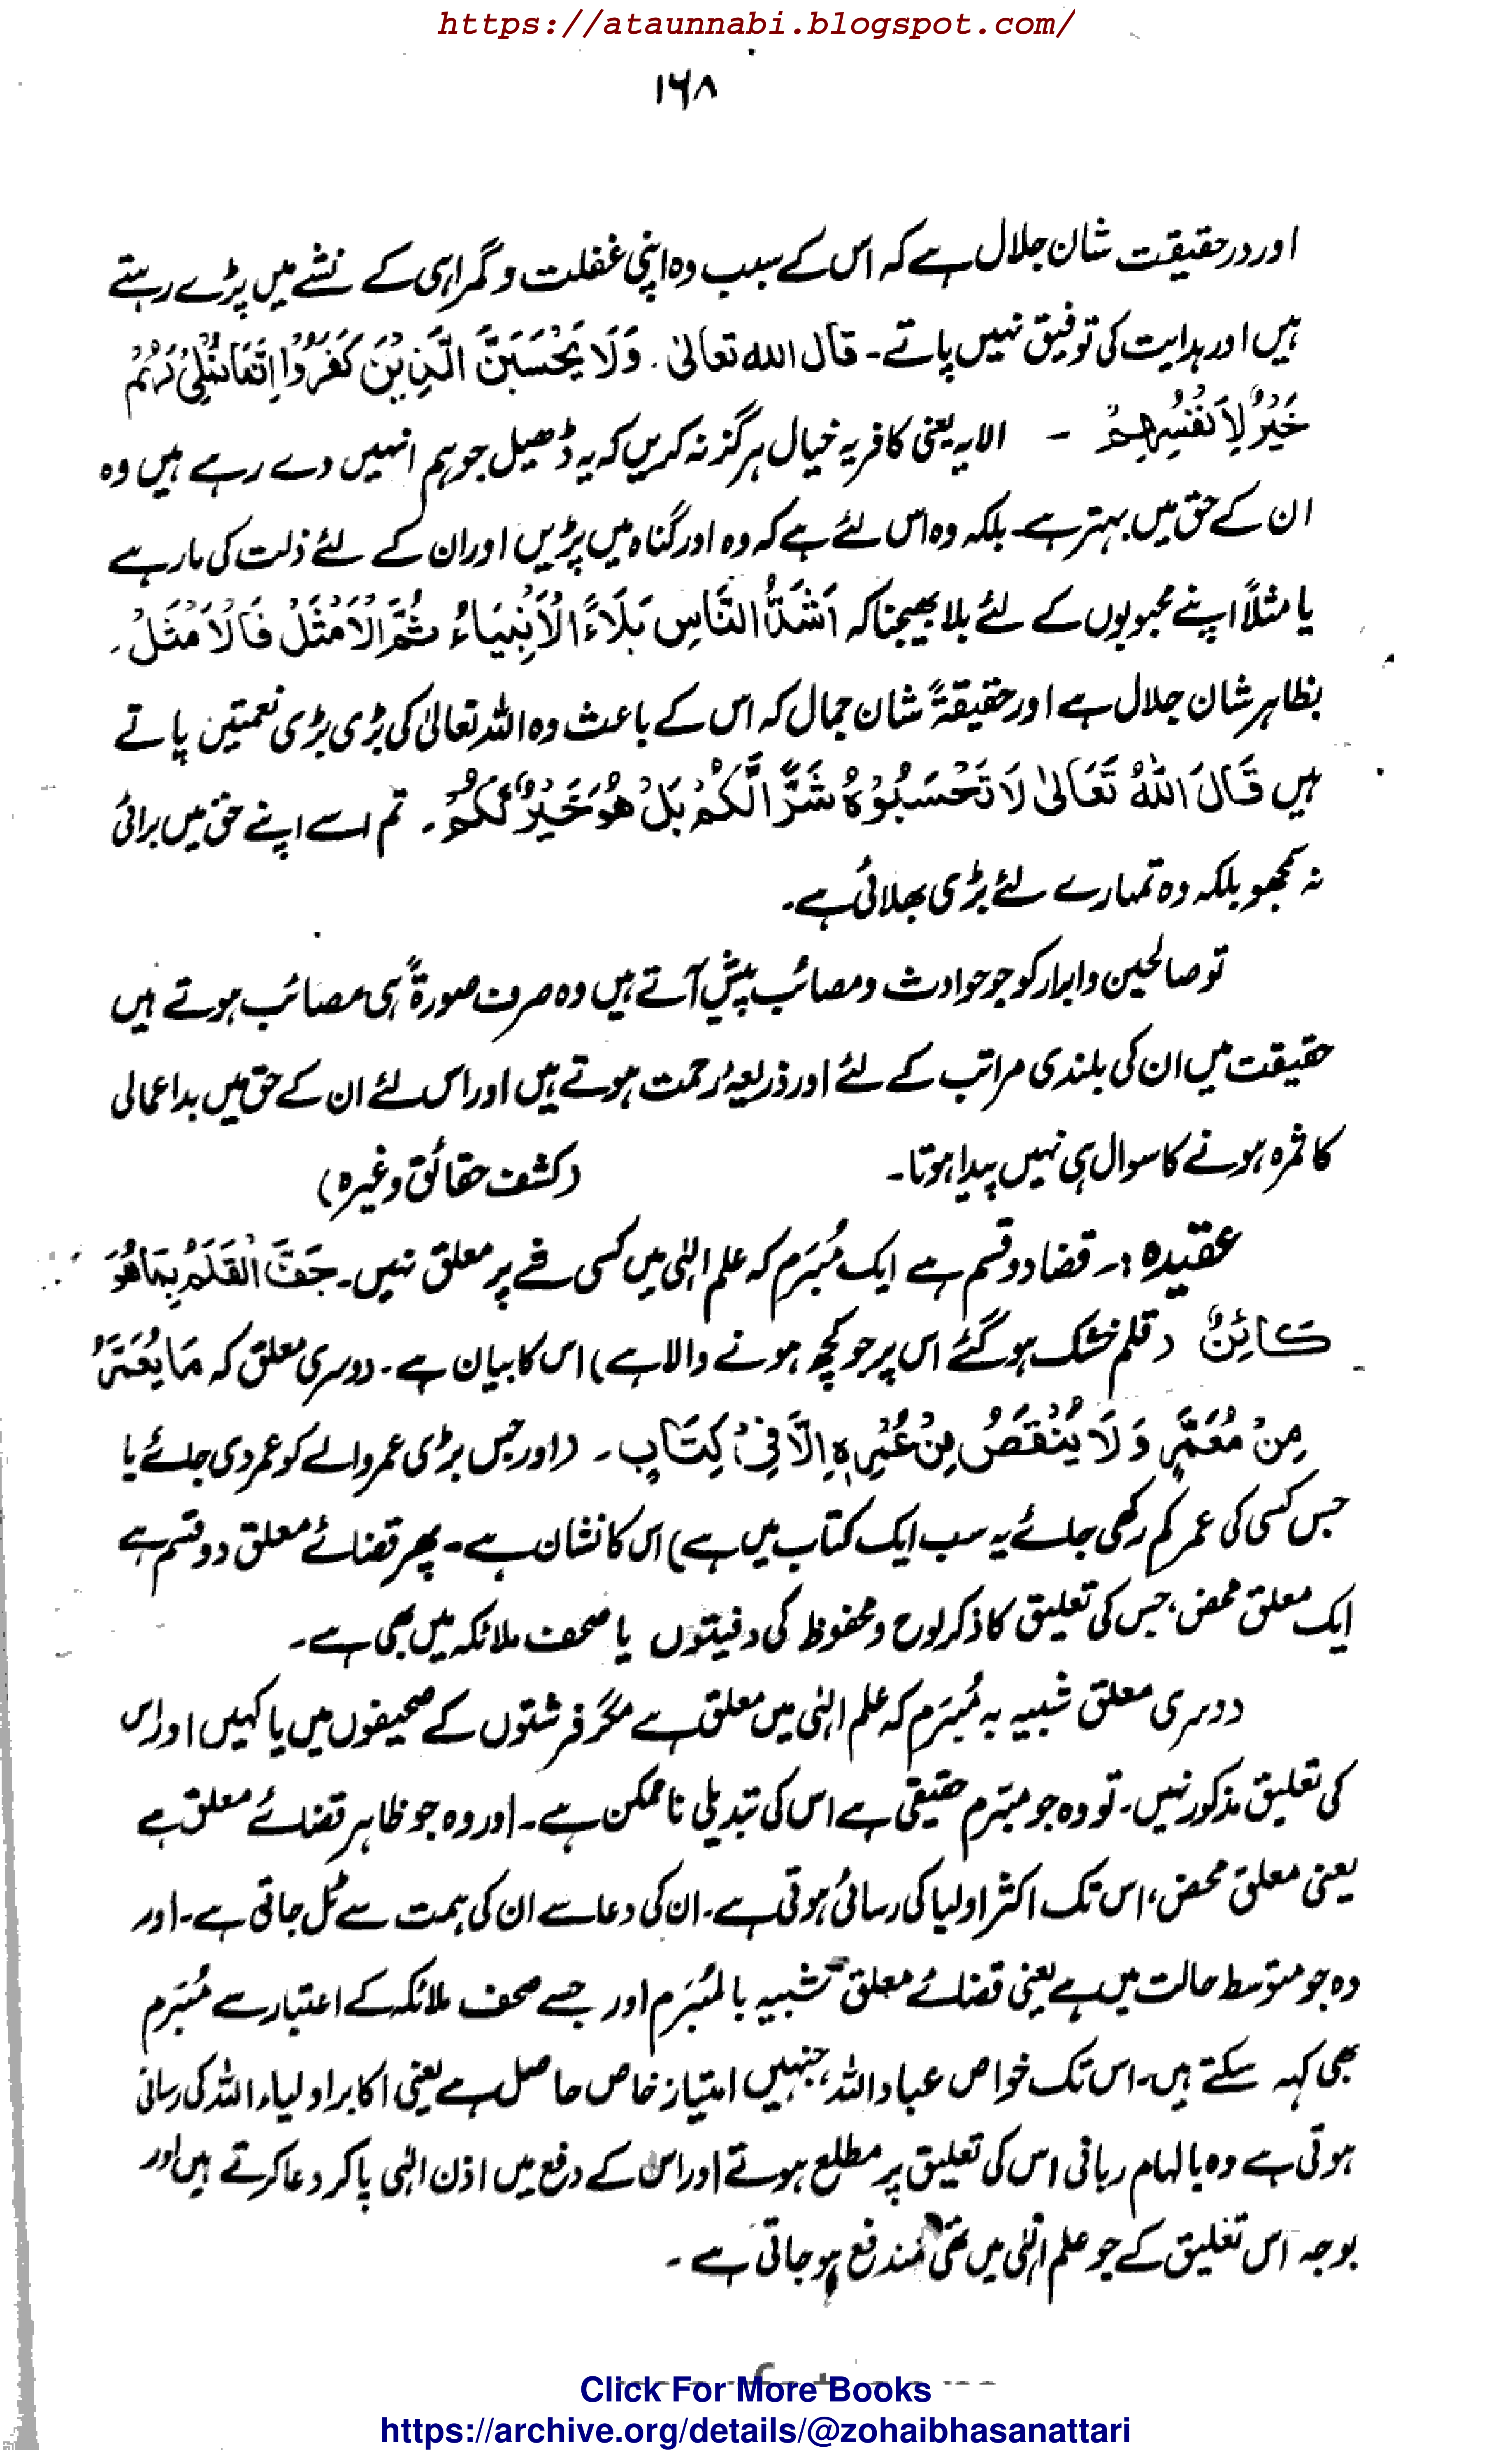 https://ataunnabi.blogspot.com/
۱۶۸
اور درحقیقت شان جلال ہے کہ اس کے سبب وہ اپنی غفلت و گمراہی کے نشے میں پڑے رہتے
ہیں اور ہدایت کی توفیق نہیں پاتے۔ قال اللہ تعالیٰ۔ وَلَا یَحْسَبَنَّ الَّذِیْنَ کَفَرُوْا اِنَّمَا نُمْلِیْ لَہُمْ
خَیْرٌ لِّاَنْفُسِہِمْ ۔ الایہ یعنی کافر یہ خیال ہرگز نہ کریں کہ یہ ڈھیل جو ہم انہیں دے رہے ہیں وہ
ان کے حق میں بہتر ہے۔ بلکہ وہ اس لئے ہے کہ وہ اور گناہ میں پڑیں اور ان کے لئے ذلت کی مار ہے
یا مثلاً اپنے محبوبوں کے لئے بلا بھیجنا کہ اَشَدُّ النَّاسِ بَلَاءً الْاَنْبِیَاءُ ثُمَّ الْاَمْثَلُ فَالْاَمْثَلُ۔
بظاہر شان جلال ہے اور حقیقۃً شان جمال کہ اس کے باعث وہ اللہ تعالیٰ کی بڑی بڑی نعمتیں پاتے
ہیں قَالَ اللّٰہُ تَعَالیٰ لَا تَحْسَبُوْہُ شَرًّا لَّکُمْ بَلْ ھُوَ خَیْرٌ لَّکُمْ۔ تم اسے اپنے حق میں برائی
نہ سمجھو بلکہ وہ تمہارے لئے بڑی بھلائی ہے۔
تو صالحین و ابرار کو جو حوادث و مصائب پیش آتے ہیں وہ صرف صورۃً ہی مصائب ہوتے ہیں
حقیقت میں ان کی بلندی مراتب کے لئے اور ذریعۂ رحمت ہوتے ہیں اور اس لئے ان کے حق میں بداعمالی
کا ثمرہ ہونے کا سوال ہی نہیں پیدا ہوتا۔ (کشف حقائق وغیرہ)
عقیدہ :۔ قضا دو قسم ہے ایک مُبْرَم کہ علم الہٰی میں کسی شے پر معلق نہیں۔ جَفَّ الْقَلَمُ بِمَا ھُوَ
کَائِنٌ (قلم خشک ہو گئے اس پر جو کچھ ہونے والا ہے) اس کا بیان ہے۔ دوسری معلق کہ مَا یُعَمَّرُ
مِنْ مُعَمَّرٍ وَلَا یُنْقَصُ مِنْ عُمُرِہٖ اِلَّا فِیْ کِتَابٍ۔ (اور جس بڑی عمر والے کو عمر دی جائے یا
جس کسی کی عمر کم رکھی جائے یہ سب ایک کتاب میں ہے) اس کا نشان ہے۔ پھر قضائے معلق دو قسم ہے
ایک معلق محض، جس کی تعلیق کا ذکر لوح و محفوظ کی دفیتوں یا صحف ملائکہ میں بھی ہے۔
دوسری معلق شبیہ بہ مُبْرَم کہ علم الہٰی میں معلق ہے مگر فرشتوں کے صحیفوں میں یا کہیں اور اس
کی تعلیق مذکور نہیں۔ تو وہ جو مبرم حقیقی ہے اس کی تبدیلی ناممکن ہے۔ اور وہ جو ظاہر قضائے معلق ہے
یعنی معلق محض، اس تک اکثر اولیا کی رسائی ہوتی ہے۔ ان کی دعا سے ان کی ہمت سے ٹل جاتی ہے۔ اور
وہ جو متوسط حالت میں ہے یعنی قضائے معلق شبیہ بالمُبْرَم اور جسے صحف ملائکہ کے اعتبار سے مُبْرَم
بھی کہہ سکتے ہیں۔ اس تک خواص عباد اللہ، جنہیں امتیاز خاص حاصل ہے یعنی اکابر اولیاء اللہ کی رسائی
ہوتی ہے وہ بالہام ربانی اس کی تعلیق پر مطلع ہوتے اور اس کے دفع میں اذن الہٰی پا کر دعا کرتے ہیں اور
بوجہ اس تعلیق کے جو علم الہٰی میں تھی مندفع ہو جاتی ہے ۔
Click For More Books
https://archive.org/details/@zohaibhasanattari